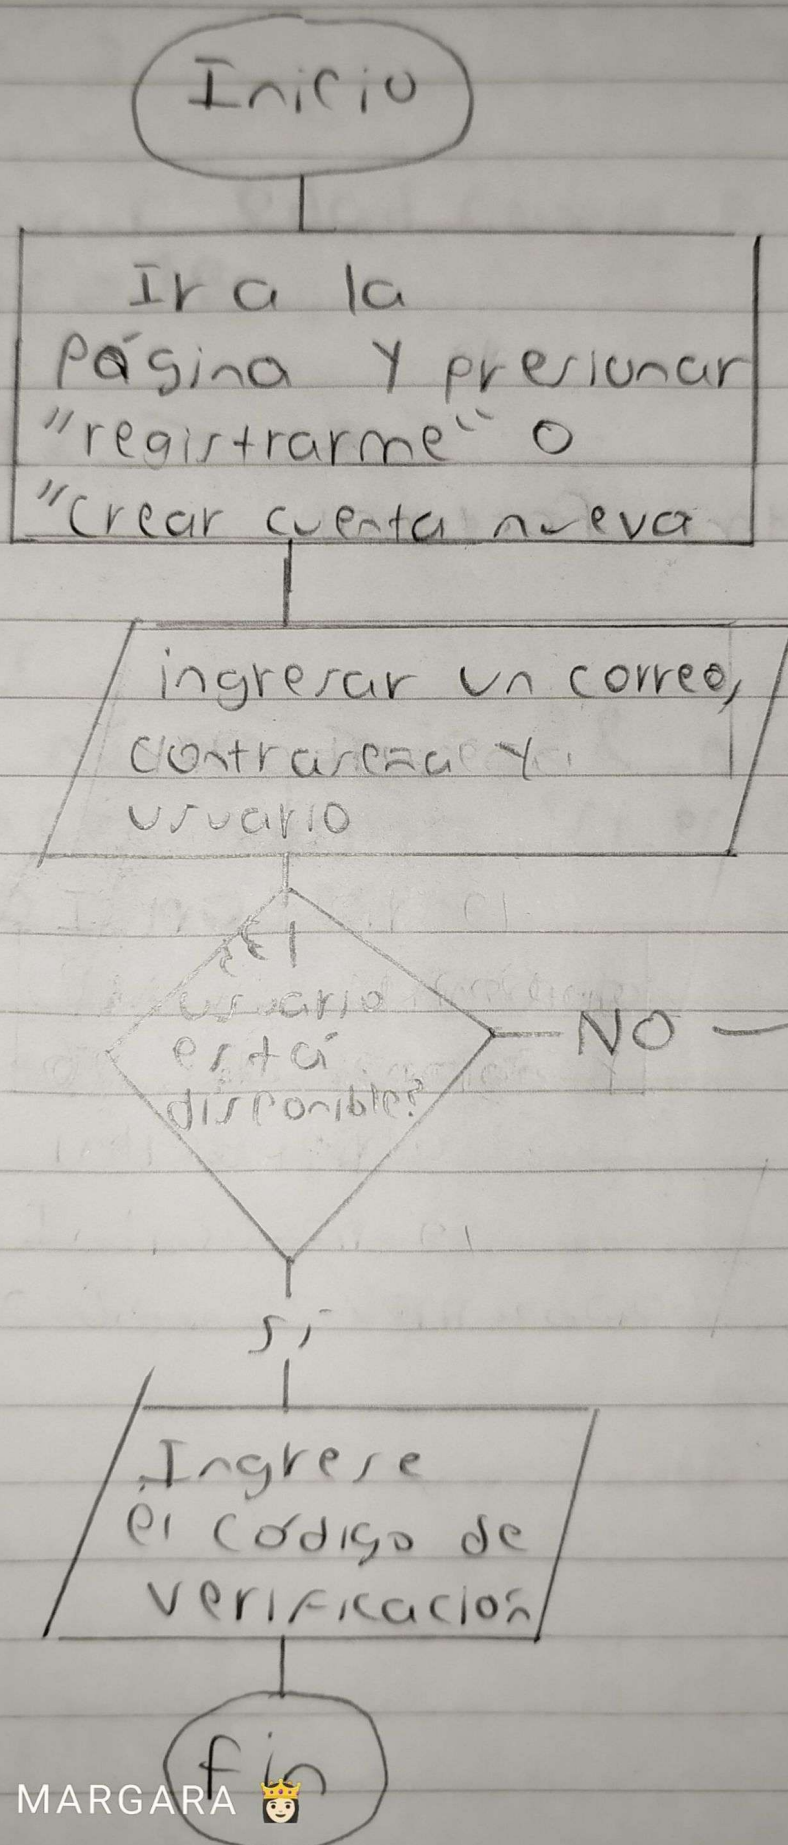 Inicio
Ir a la
Página y presionar
"registrarme" o
"Crear cuenta nueva
ingresar un correo,
contraseña y
usuario
¿El
usuario
está
disponible?
NO
Sí
Ingrese
el código de
verificación
fin
MARGARA 👸🏻